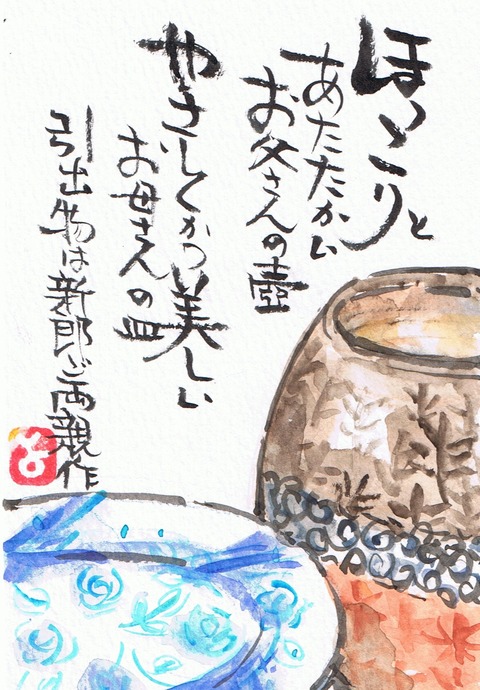 ほっこりと
あたたかい
お父さんの壺
やさしくかつ美しい
お母さんの皿
引出物は新郎ご両親作